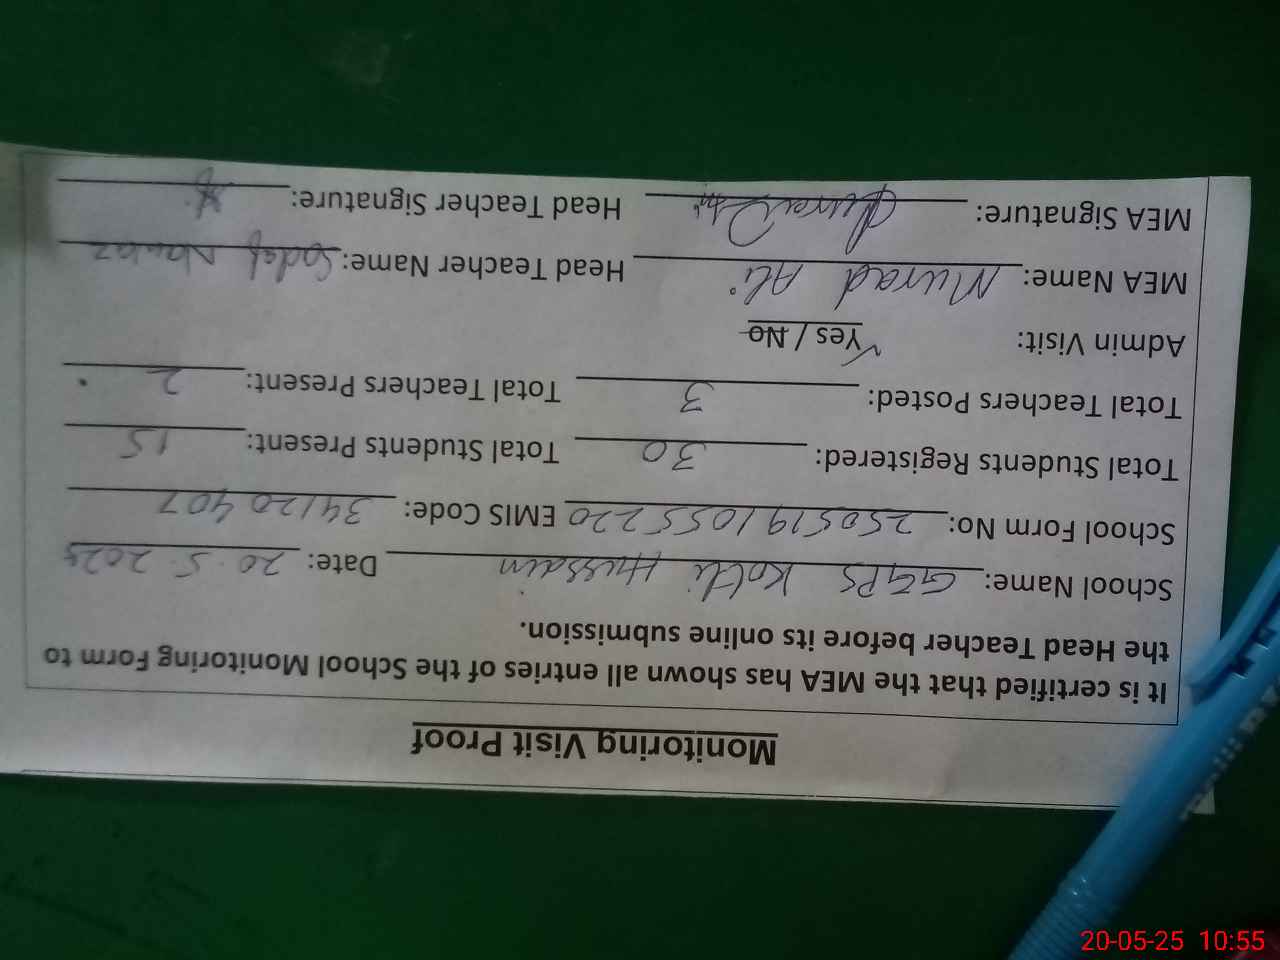 Monitoring Visit Proof
It is certified that the MEA has shown all entries of the School Monitoring Form to
the Head Teacher before its online submission.
School Name: GGPS Kotli Hussain Date: 20.5.2025
School Form No: 2505191055220 EMIS Code: 34120407
Total Students Registered: 30 Total Students Present: 15
Total Teachers Posted: 3 Total Teachers Present: 2
Admin Visit: Yes / No
MEA Name: Murad Ali Head Teacher Name: Sadaf Nawaz
MEA Signature: Head Teacher Signature:
20-05-25 10:55